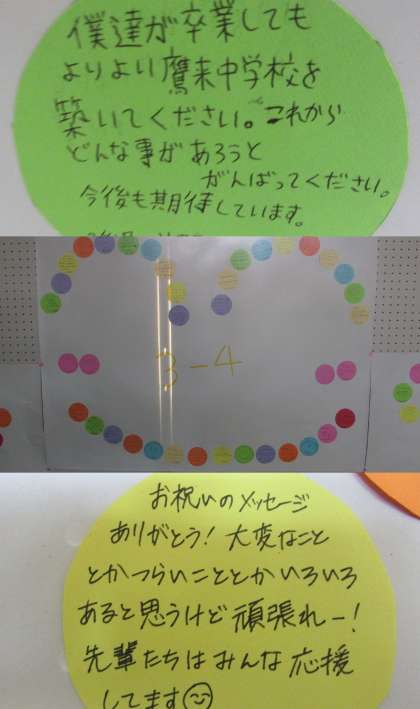 僕達が卒業しても
よりよい鷹来中学校を
築いてください。これから
どんな事があろうと
がんばってください。
今後も期待しています。
3-4
お祝いのメッセージ
ありがとう!大変なこと
とかつらいこととかいろいろ
あると思うけど頑張れー!
先輩たちはみんな応援
してます